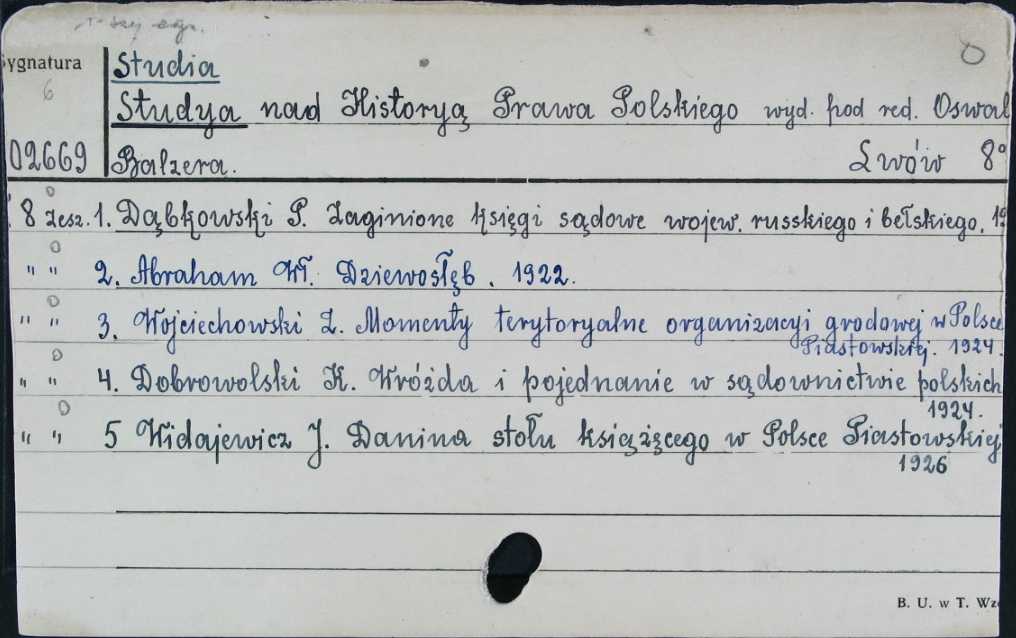 ygnatura
6
02669
Studia
Studya nad Historyą Prawa Polskiego wyd. pod red. Oswal
Balzera. Lwów 8°
8 zesz. 1. Dąbkowski P. Zaginione księgi sądowe wojew. russkiego i bełskiego. 19
" " 2. Abraham Wł. Dziewosłęb. 1922.
" " 3. Wojciechowski Z. Momenty terytoryalne organizacyi grodowej w Polsce
Piastowskiej. 1924.
" " 4. Dobrowolski K. Wróżda i pojednanie w sądownictwie polskich
1924.
" " 5 Widajewicz J. Danina stołu książęcego w Polsce Piastowskiej
1926
B. U. w T. Wz